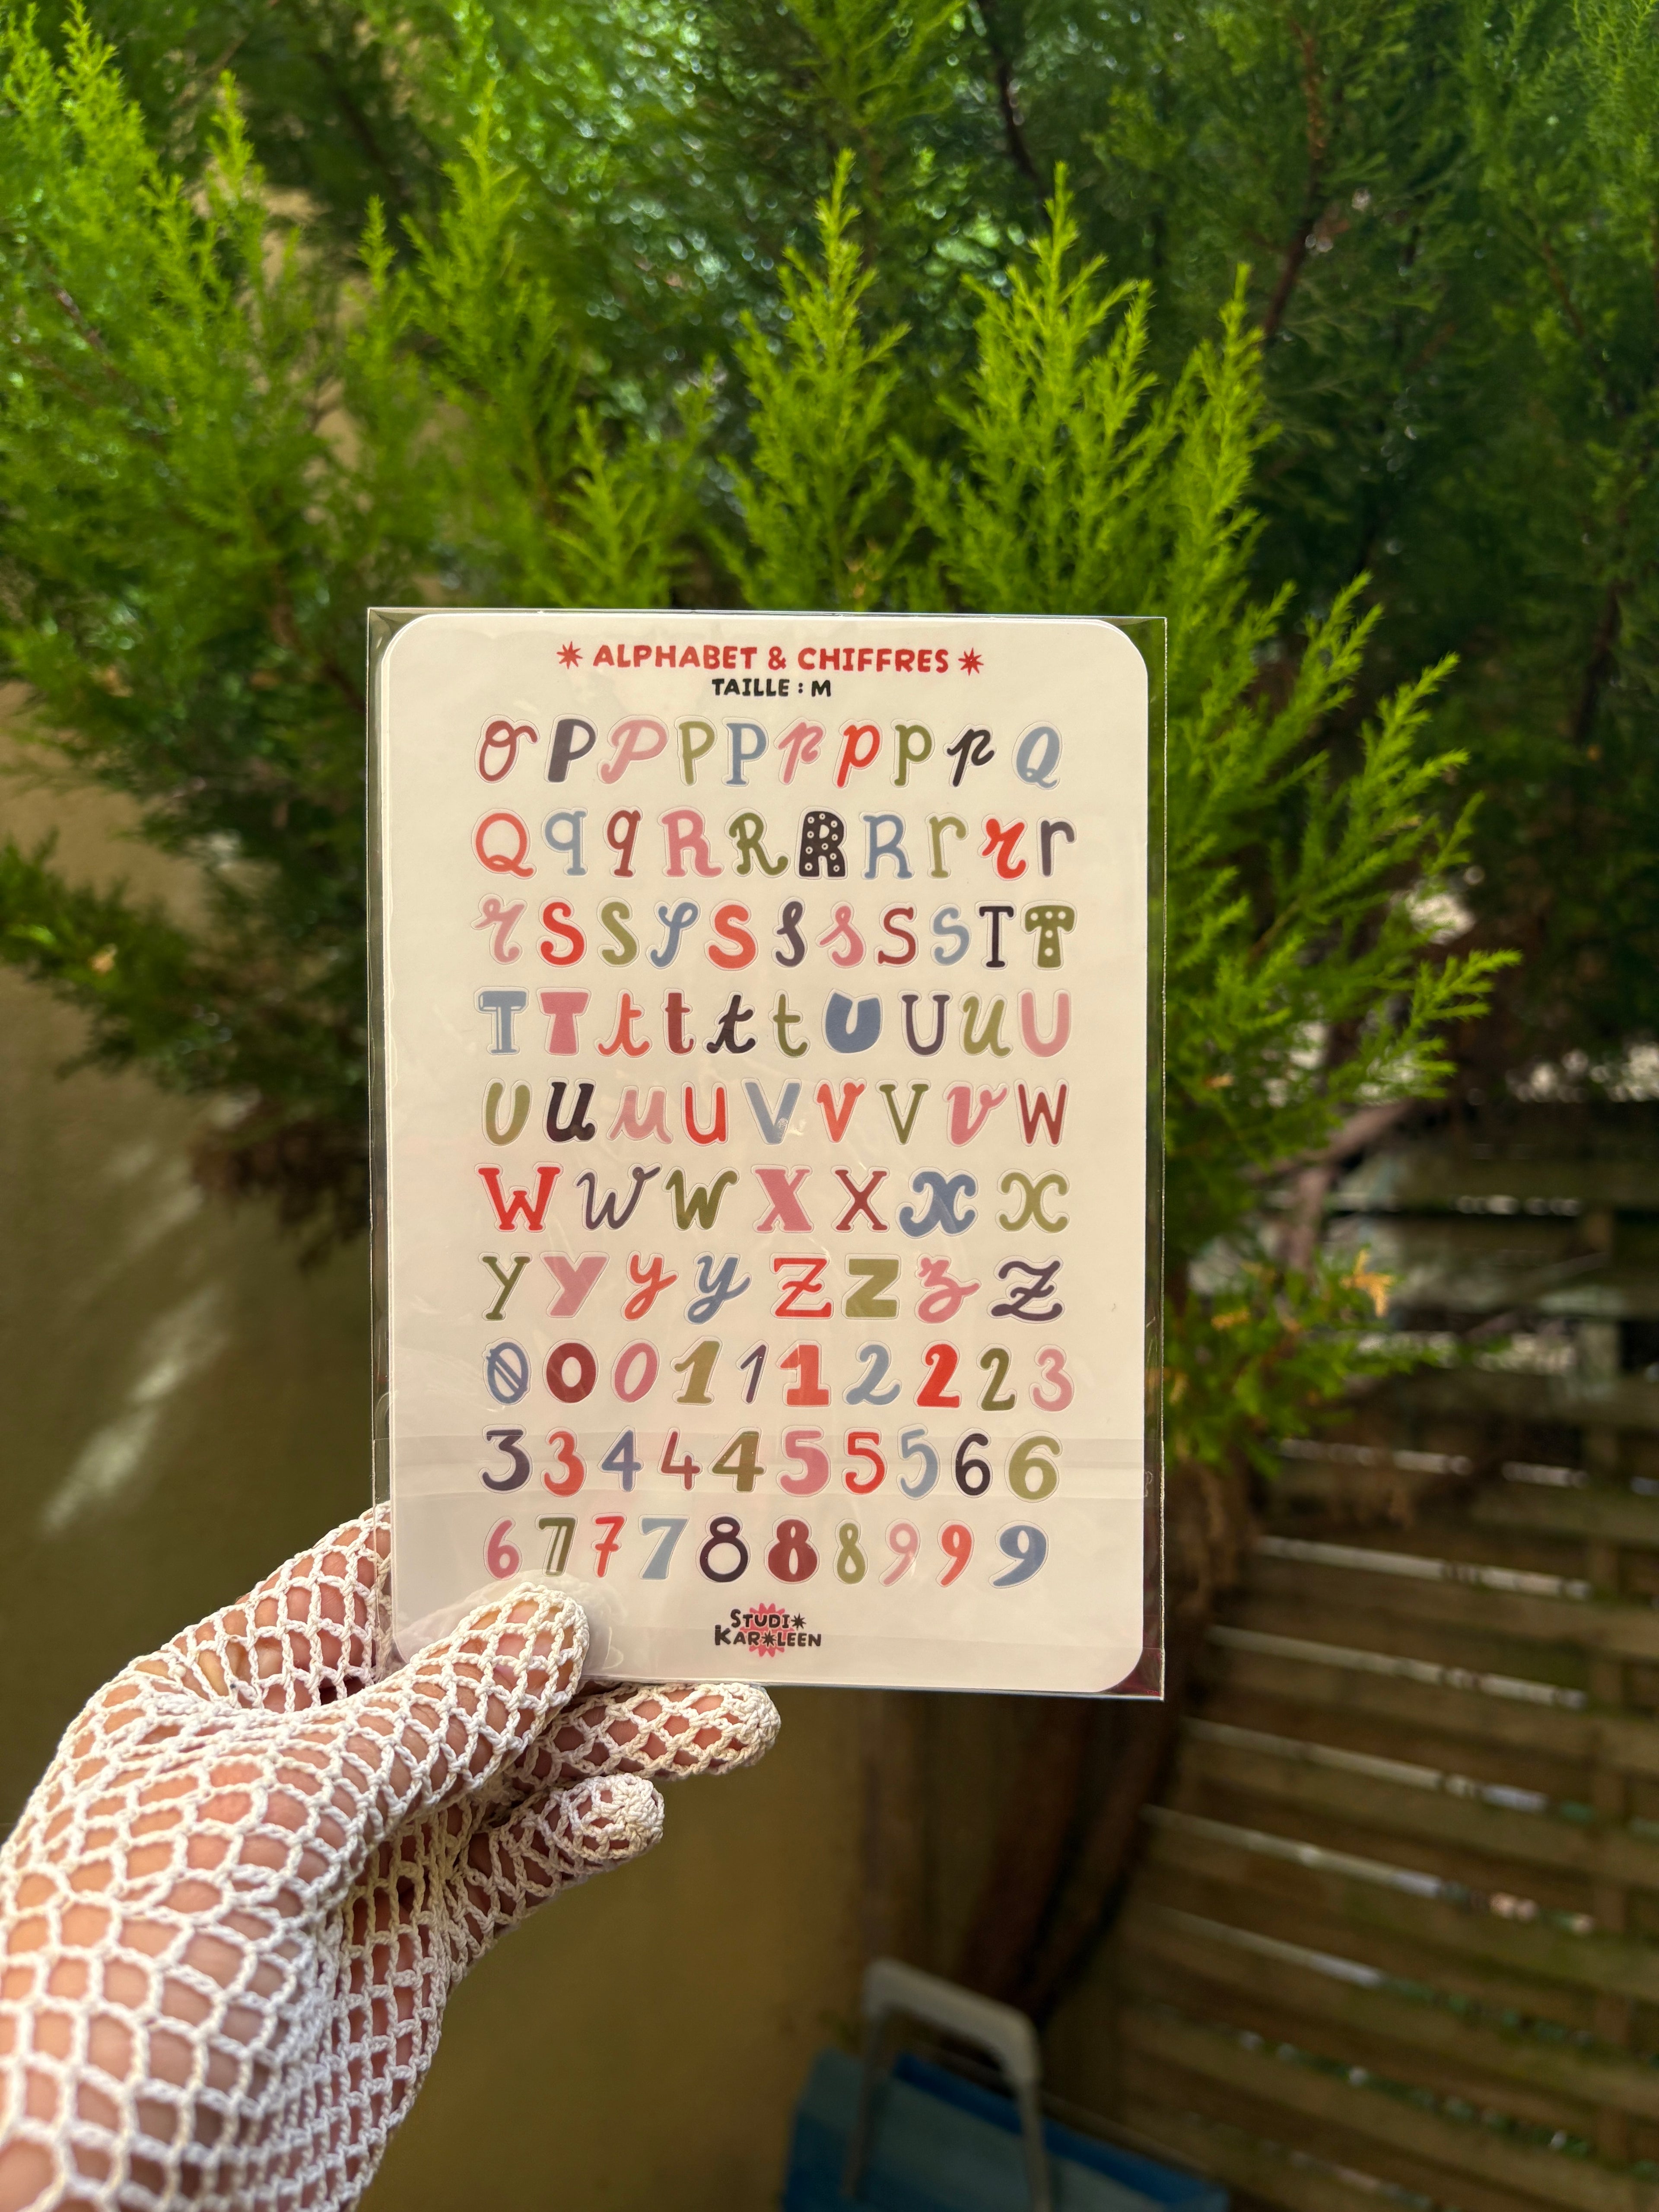 ALPHABET & CHIFFRES
TAILLE : M
o P P P P p p p p Q
Q q q R R R R r r r
r S S S S s s s s T T
T T t t t t U U u U
U u u u V v V v W
W w w X X x x
y Y y y Z Z z z
0 0 0 1 1 1 2 2 2 3
3 3 4 4 4 5 5 5 6 6
6 7 7 7 8 8 8 9 9 9
STUDIO
KAROLEEN